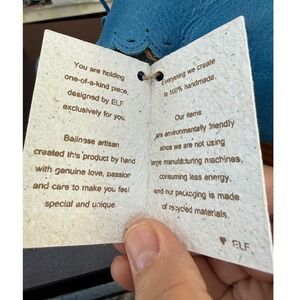 You are holding
one-of-a-kind piece,
designed by ELF
exclusively for you.
Balinese artisan
created this product by hand
with genuine love, passion
and care to make you feel
special and unique.
Everything we create
is 100% handmade.
Our items
are environmentally friendly
since we are not using
large manufacturing machines,
consuming less energy,
and our packaging is made
of recycled materials.
♥ ELF